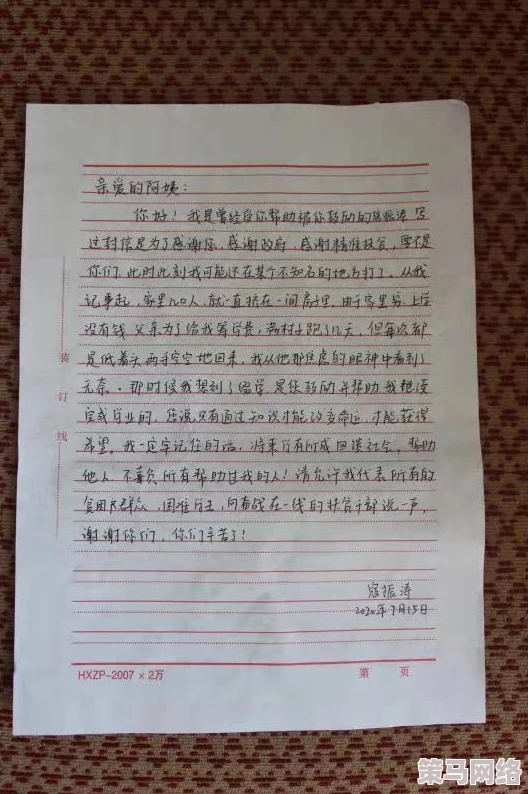 亲爱的阿姨：
你好！我是曾经受你帮助被你鼓励的寇振涛 写
这封信是为了感谢您、感谢政府、感谢精准扶贫，要不是
你们，此时此刻我可能还在某个不知名的地方打工。从我
记事起，家里几口人，就一直挤在一间房子里，由于家里穷，上学
没有钱 父亲为了给我筹学费，满村子跑了几天，但每次都
是低着头两手空空地回来，我从他那焦虑的眼神中看到了
无奈。那时候我想到了辍学 是您鼓励并帮助我
完成学业的，您说只有通过知识才能改变命运，才能获得
希望。我一定牢记您的话，将来学有所成回馈社会，帮助
他人，不辜负所有帮助过我的人！请允许我代表所有的
贫困户群众、困难学生，向奋战在一线的扶贫干部说一声，
谢谢你们，你们辛苦了！
寇振涛
2020年7月15日
装
订
线
HXZP-2007×2万
第 页
策马网络